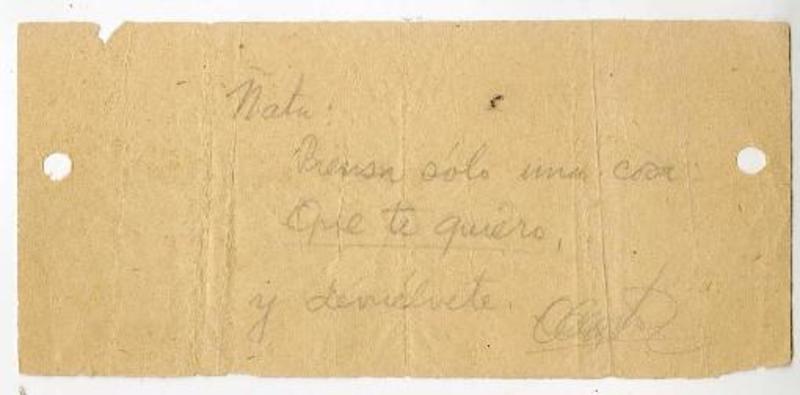 Ñata:
Piensa sólo una cosa:
Que te quiero,
y devuélvete.